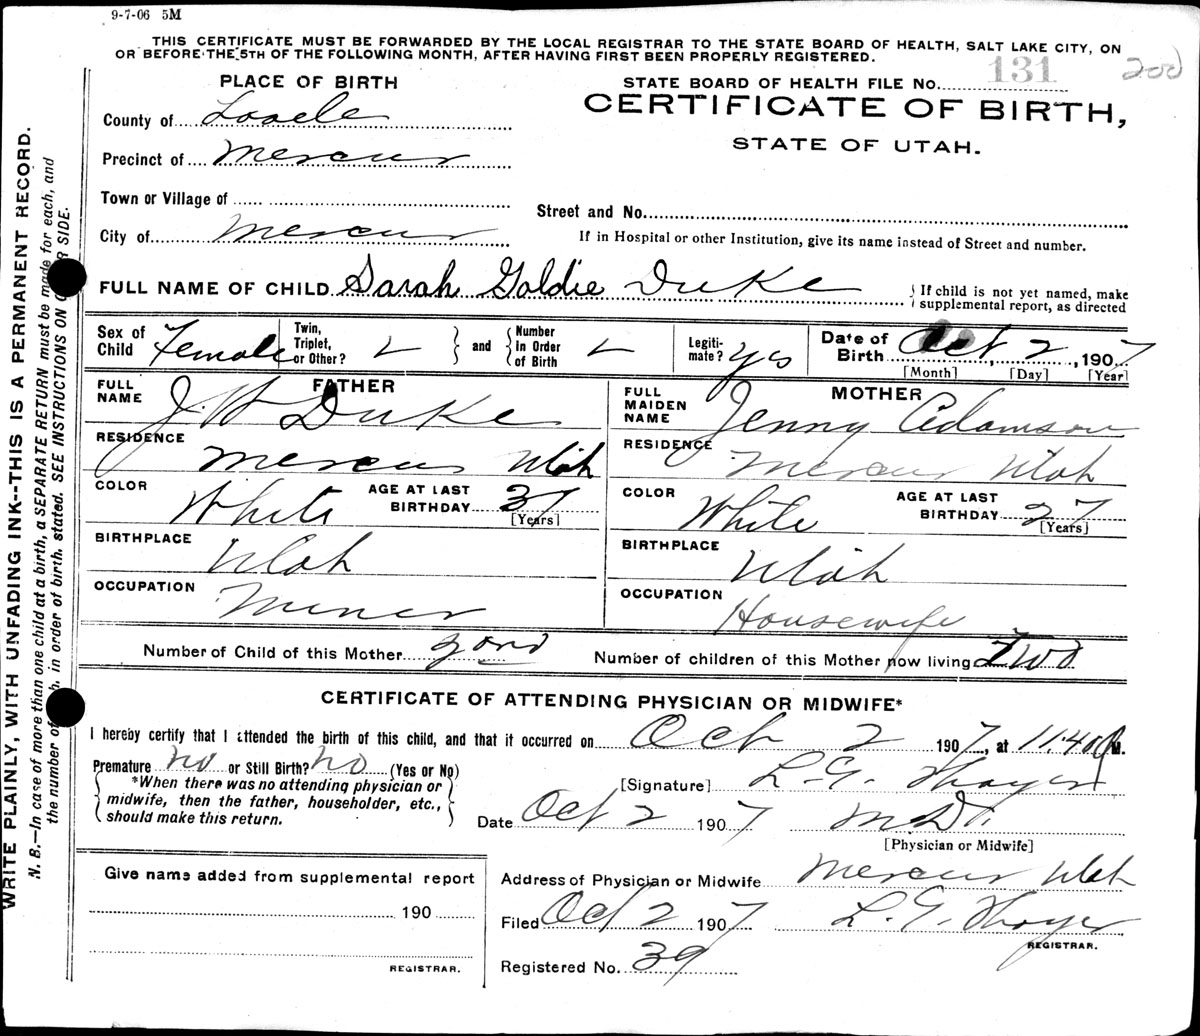 9-7-06 5M
THIS CERTIFICATE MUST BE FORWARDED BY THE LOCAL REGISTRAR TO THE STATE BOARD OF HEALTH, SALT LAKE CITY, ON
OR BEFORE THE 5TH OF THE FOLLOWING MONTH, AFTER HAVING FIRST BEEN PROPERLY REGISTERED.
PLACE OF BIRTH
STATE BOARD OF HEALTH FILE NO. 131 200
CERTIFICATE OF BIRTH,
STATE OF UTAH.
County of Tooele
Precinct of Mercur
Town or Village of
Street and No.
City of Mercur
If in Hospital or other Institution, give its name instead of Street and number.
FULL NAME OF CHILD Sarah Goldie Duke
If child is not yet named, make
supplemental report, as directed
Sex of Child Female
Twin, Triplet, or Other?
and
Number In Order of Birth
Legiti-mate? yes
Date of Birth Oct 2, 1907
[Month] [Day] [Year]
FATHER
FULL NAME J. H Duke
RESIDENCE Mercur Utah
COLOR White
AGE AT LAST BIRTHDAY 37
[Years]
BIRTHPLACE Utah
OCCUPATION Miner
MOTHER
FULL MAIDEN NAME Jenny Adamson
RESIDENCE Mercur Utah
COLOR White
AGE AT LAST BIRTHDAY 27
[Years]
BIRTHPLACE Utah
OCCUPATION Housewife
Number of Child of this Mother
Number of children of this Mother now living Two
CERTIFICATE OF ATTENDING PHYSICIAN OR MIDWIFE*
I hereby certify that I attended the birth of this child, and that it occurred on Oct 2 1907, at 11.40 M.
Premature no or Still Birth? no (Yes or No)
*When there was no attending physician or
midwife, then the father, householder, etc.,
should make this return.
[Signature] L. G. Thayer
Date Oct 2 1907 M.D.
[Physician or Midwife]
Give name added from supplemental report
190
REGISTRAR.
Address of Physician or Midwife Mercur Utah
Filed Oct 2 1907 L. G. Thayer
REGISTRAR.
Registered No. 39
WRITE PLAINLY, WITH UNFADING INK--THIS IS A PERMANENT RECORD.
N. B.—In case of more than one child at a birth, a SEPARATE RETURN must be made for each, and
the number of in order of birth, stated. SEE INSTRUCTIONS ON SIDE.